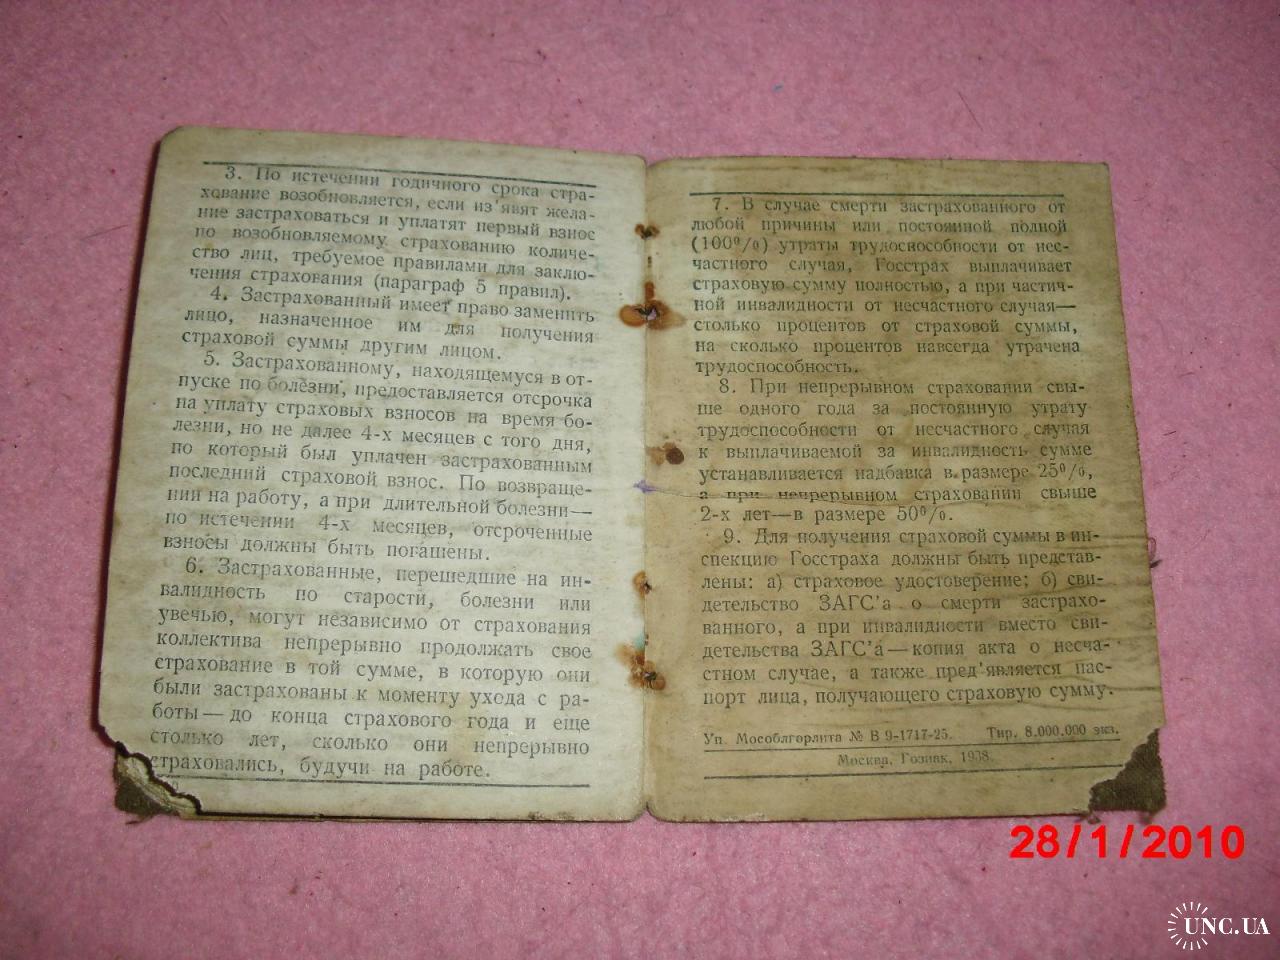 3. По истечении годичного срока стра-
хование возобновляется, если из'явят жела-
ние застраховаться и уплатят первый взнос
по возобновляемому страхованию количе-
ство лиц, требуемое правилами для заклю-
чения страхования (параграф 5 правил).
4. Застрахованный имеет право заменить
лицо, назначенное им для получения
страховой суммы другим лицом.
5. Застрахованному, находящемуся в от-
пуске по болезни, предоставляется отсрочка
на уплату страховых взносов на время бо-
лезни, но не далее 4-х месяцев с того дня,
по который был уплачен застрахованным
последний страховой взнос. По возвраще-
нии на работу, а при длительной болезни—
по истечении 4-х месяцев, отсроченные
взносы должны быть погашены.
6. Застрахованные, перешедшие на ин-
валидность по старости, болезни или
увечью, могут независимо от страхования
коллектива непрерывно продолжать свое
страхование в той сумме, в которую они
были застрахованы к моменту ухода с ра-
боты — до конца страхового года и еще
столько лет, сколько они непрерывно
страховались, будучи на работе.
7. В случае смерти застрахованного от
любой причины или постоянной полной
(100%) утраты трудоспособности от нес-
частного случая, Госстрах выплачивает
страховую сумму полностью, а при частич-
ной инвалидности от несчастного случая—
столько процентов от страховой суммы,
на сколько процентов навсегда утрачена
трудоспособность.
8. При непрерывном страховании свы-
ше одного года за постоянную утрату
трудоспособности от несчастного случая
к выплачиваемой за инвалидность сумме
устанавливается надбавка в размере 25%,
а при непрерывном страховании свыше
2-х лет—в размере 50%.
9. Для получения страховой суммы в ин-
спекцию Госстраха должны быть представ-
лены: а) страховое удостоверение; б) сви-
детельство ЗАГС'а о смерти застрахо-
ванного, а при инвалидности вместо сви-
детельства ЗАГС'а — копия акта о несча-
стном случае, а также пред'является пас-
порт лица, получающего страховую сумму.
Уп. Мособлгорлита № В 9-1717-25. Тир. 8.000.000 экз.
Москва, Гознак, 1938.
28/1/2010
UNC.UA